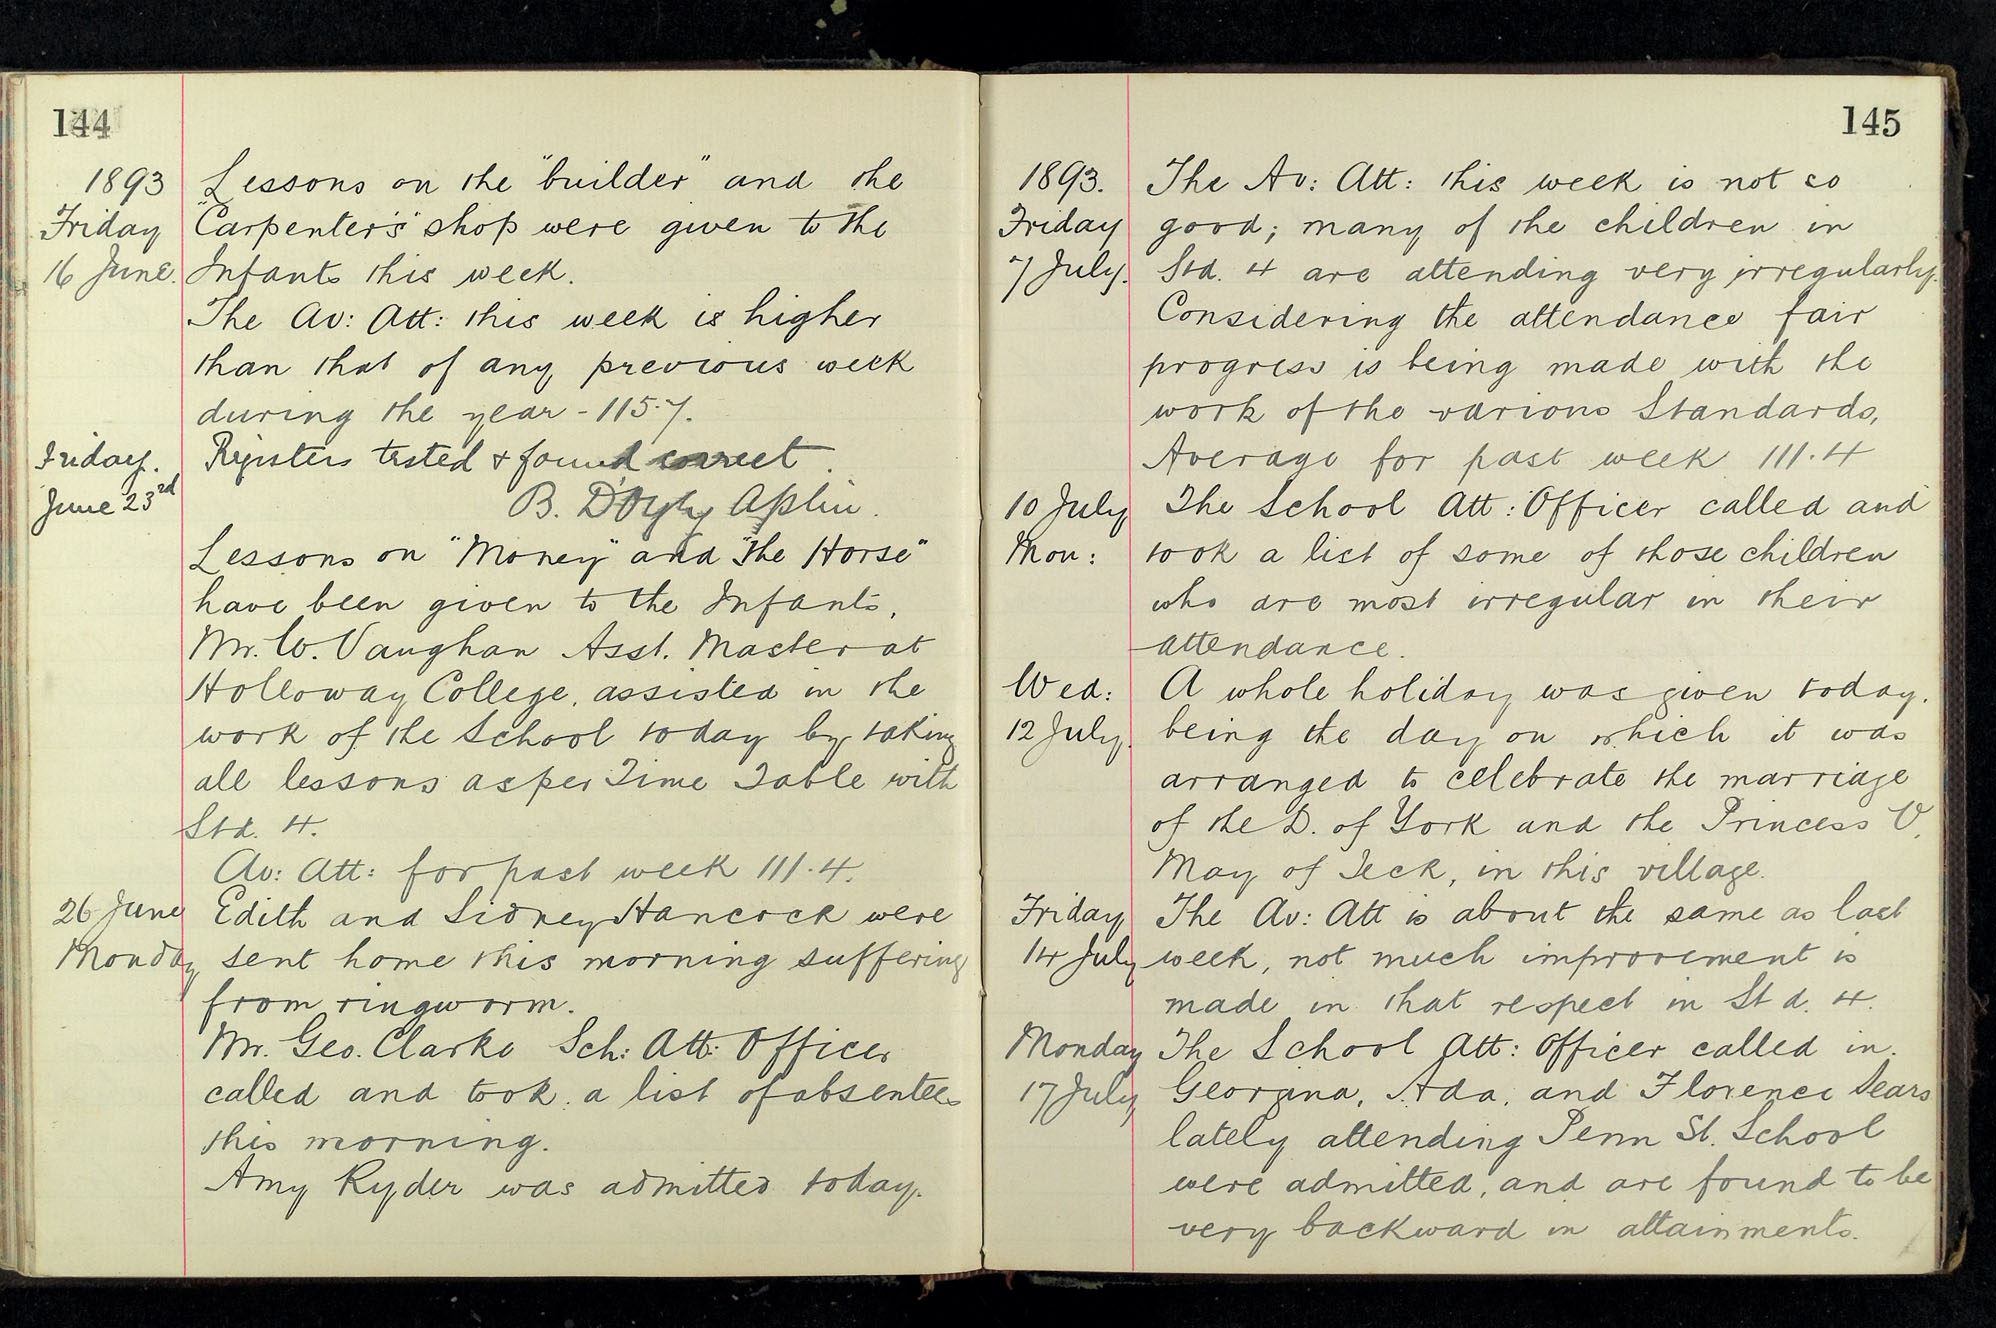 144
1893 Lessons on the "builder" and the
Friday "Carpenter's" shop were given to the
16 June. Infants this week.
The Av: Att: this week is higher
than that of any previous week
during the year - 115.7.
Friday. Registers tested & found correct.
June 23rd B. D'Oyly Aplin.
Lessons on "Money" and "the Horse"
have been given to the Infants.
Mr. W. Vaughan Asst. Master at
Holloway College, assisted in the
work of the School today by taking
all lessons as per Time Table with
Std. 4.
Av: Att: for past week 111.4.
26 June Edith and Sidney Hancock were
Monday sent home this morning suffering
from ringworm.
Mr. Geo. Clarke Sch: Att: Officer
called and took a list of absentees
this morning.
Amy Ryder was admitted today.
145
1893. The Av: Att: this week is not so
Friday good; many of the children in
7 July. Std. 4 are attending very irregularly.
Considering the attendance fair
progress is being made with the
work of the various Standards,
Average for past week 111.4
10 July The School Att: Officer called and
Mon: took a list of some of those children
who are most irregular in their
attendance.
Wed: A whole holiday was given today,
12 July. being the day on which it was
arranged to celebrate the marriage
of the D. of York and the Princess V.
May of Teck, in this village.
Friday The Av: Att is about the same as last
14 July week, not much improvement is
made in that respect in Std. 4.
Monday The School Att: Officer called in.
17 July Georgina, Ada, and Florence Sears
lately attending Penn St. School
were admitted, and are found to be
very backward in attainments.